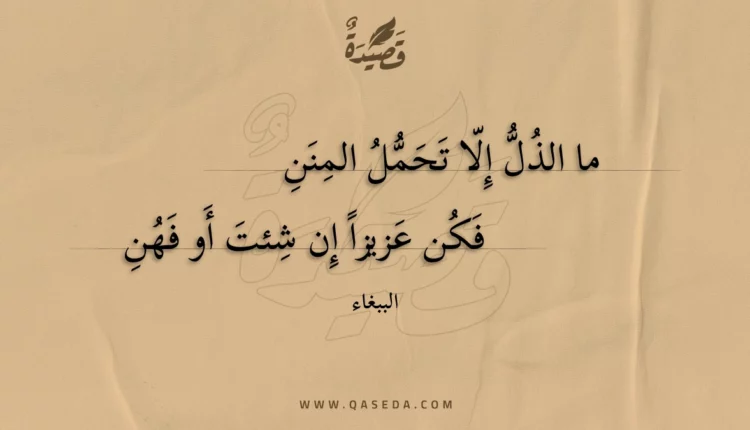 قَصِيدَةٌ
ما الذُلُّ إِلّا تَحَمُّلُ المِنَنِ
فَكُن عَزيزاً إِن شِئتَ أَو فَهُنِ
الببغاء
WWW.QASEDA.COM